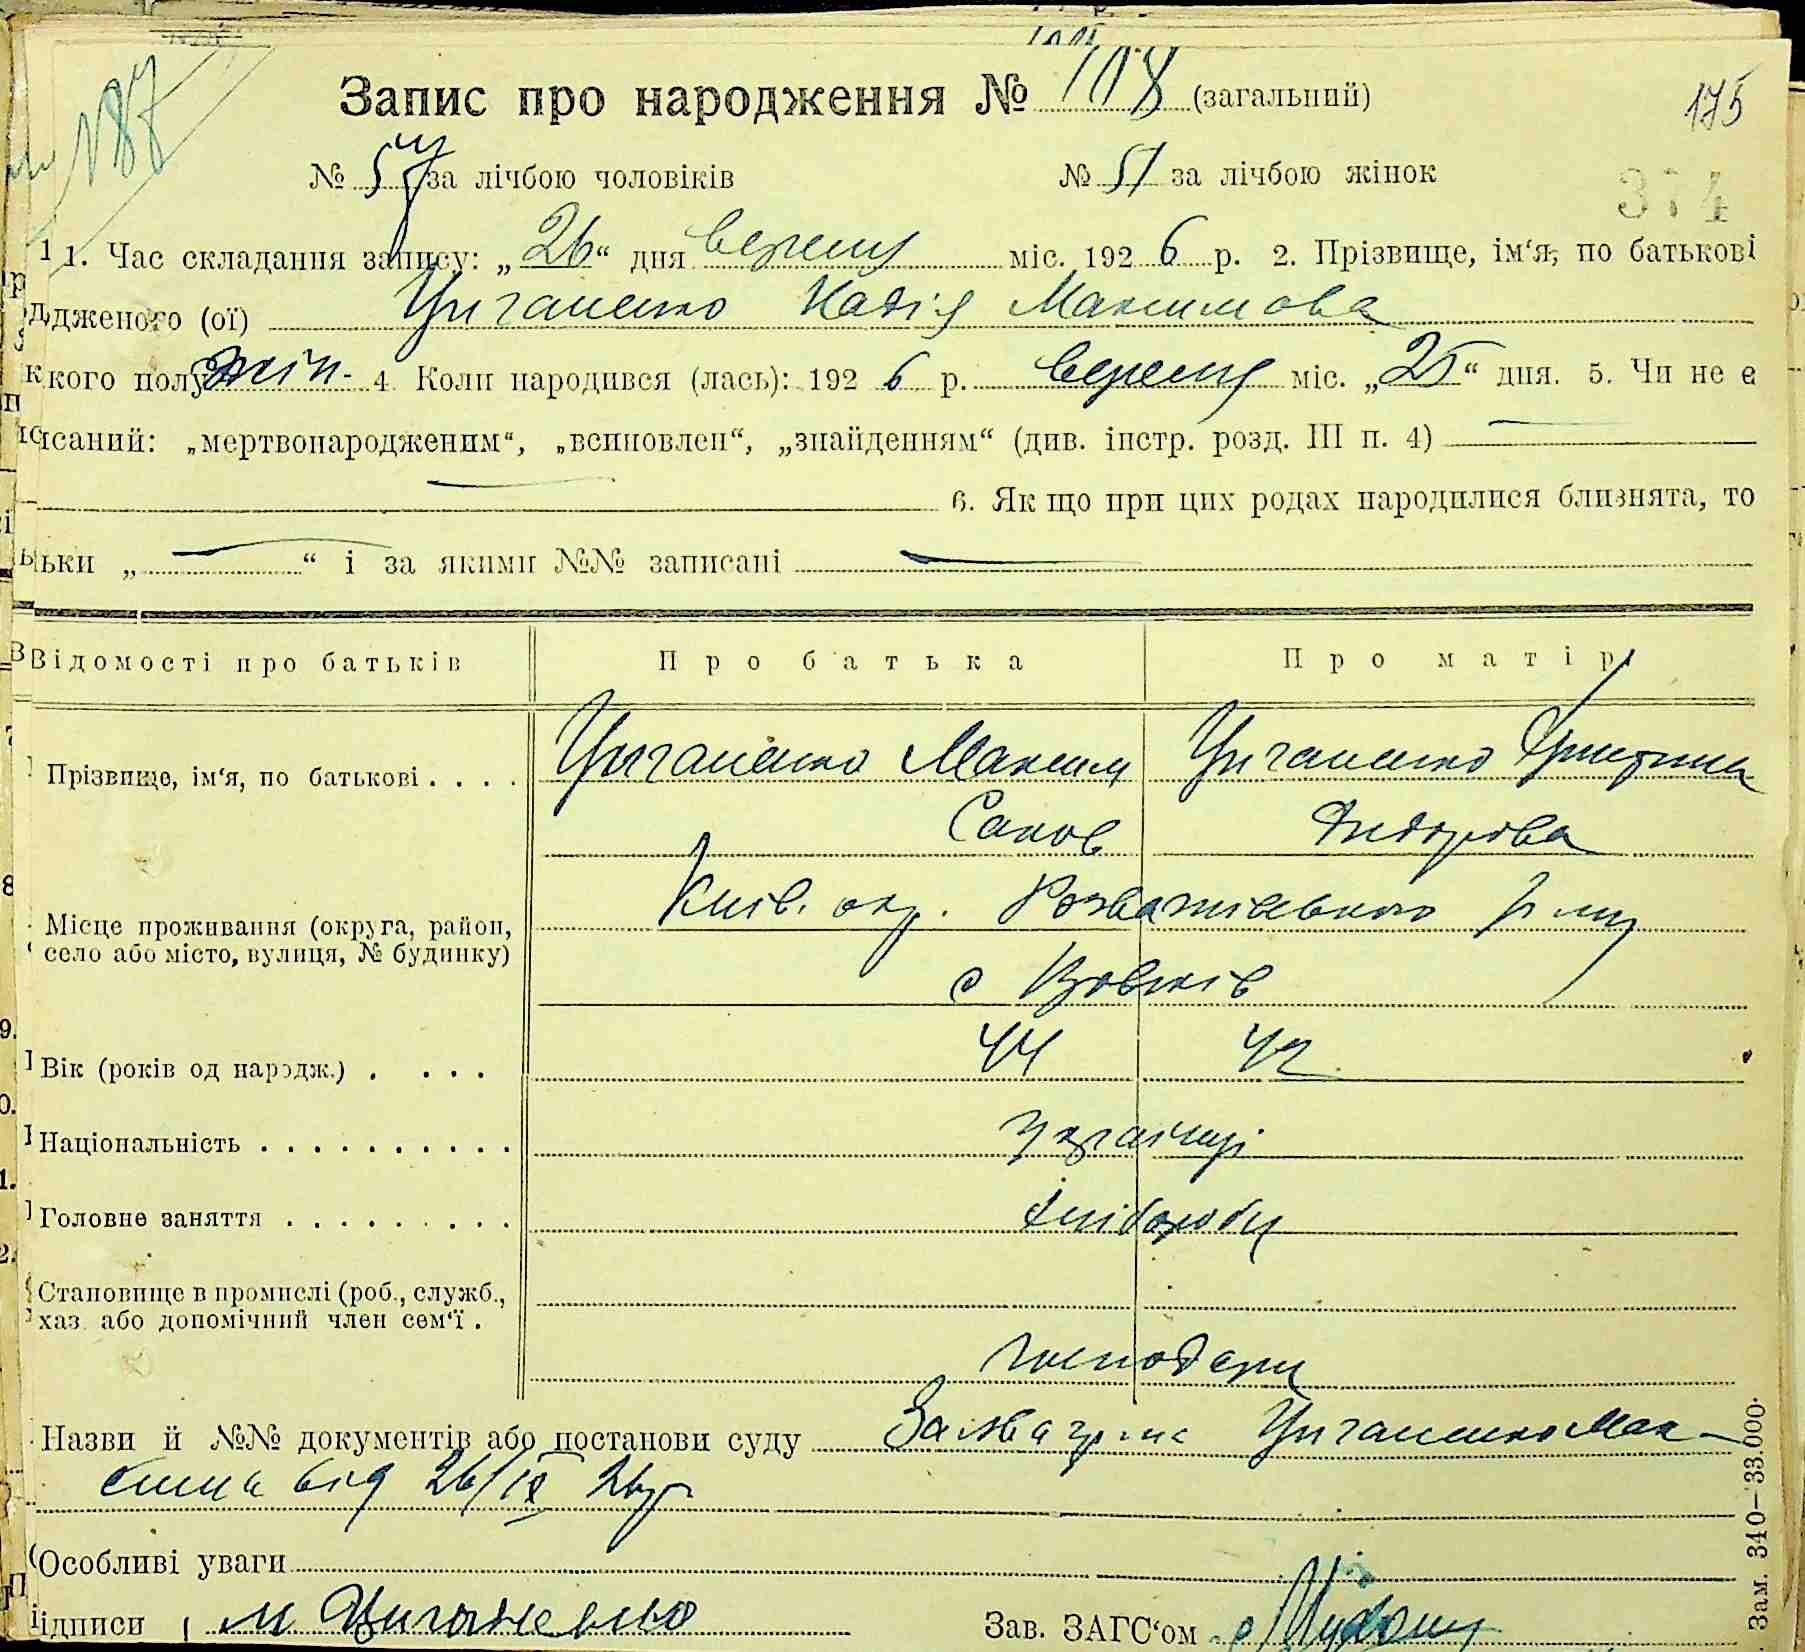 187
Запис про народження № 108 (загальний)
175
№ 57 за лічбою чоловіків № 51 за лічбою жінок
374
1. Час складання запису: „26“ дня вересня міс. 1926 р. 2. Прізвище, ім‘я, по батькові
дженого (ої) Циганенко Надія Максимова
кого полу жін. 4. Коли народився (лась): 1926 р. вересня міс. „25“ дня. 5. Чи не є
исаний: „мертвонародженим“, „всиновлен“, „знайденням“ (див. інстр. розд. III п. 4)
6. Як що при цих родах народилися близнята, то
льки „ “ і за якими №№ записані
Відомості про батьків Про батька Про матір
Прізвище, ім‘я, по батькові . . . . Циганенко Максим Циганенко Христина
Саков Федорова
Київ. окр. Розважівського р-ну
Місце проживання (округа, район,
село або місто, вулиця, № будинку)
с Вовків
Вік (років од народж.) . . . . 44 42
Національність . . . . . . . . . . українці
Головне заняття . . . . . . . . . хлібороби
Становище в промислі (роб., служб.,
хаз. або допомічний член сем‘ї .
господари
Назви й №№ документів або постанови суду Заява гр-на Циганенко Мак-
сима від 26/IX 26 р
Особливі уваги
ідписи М Циганенко Зав. ЗАГС‘ом
Зам. 340—33.000.